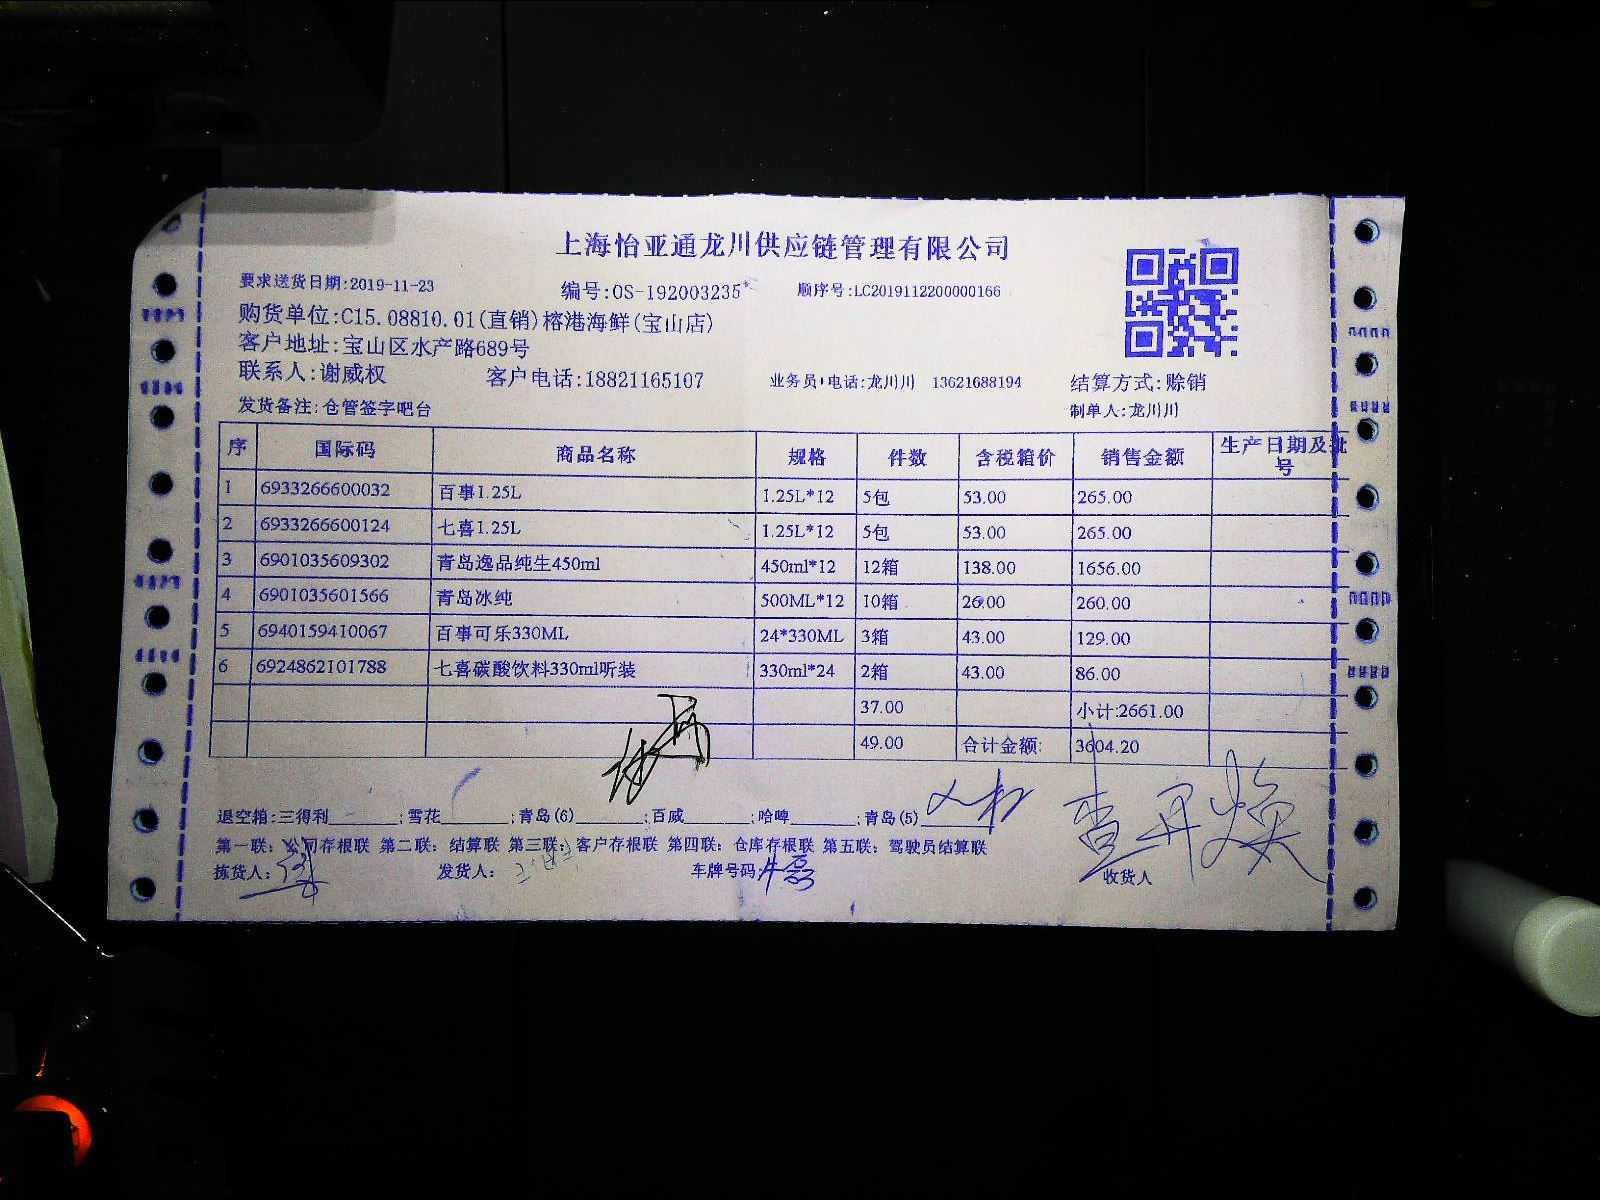 上海怡亚通龙川供应链管理有限公司
要求送货日期:2019-11-23 编号:OS-192003235 顺序号:LC2019112200000166
购货单位:C15.08810.01(直销)榕港海鲜(宝山店)
客户地址:宝山区水产路689号
联系人:谢威权 客户电话:18821165107 业务员电话:龙川川 13621688194 结算方式:赊销
发货备注:仓管签字吧台 制单人:龙川川
序 国际码 商品名称 规格 件数 含税箱价 销售金额 生产日期及批号
1 6933266600032 百事1.25L 1.25L*12 5包 53.00 265.00
2 6933266600124 七喜1.25L 1.25L*12 5包 53.00 265.00
3 6901035609302 青岛逸品纯生450ml 450ml*12 12箱 138.00 1656.00
4 6901035601566 青岛冰纯 500ML*12 10箱 26.00 260.00
5 6940159410067 百事可乐330ML 24*330ML 3箱 43.00 129.00
6 6924862101788 七喜碳酸饮料330ml听装 330ml*24 2箱 43.00 86.00
37.00 小计:2661.00
49.00 合计金额: 3604.20
退空箱:三得利________;雪花________;青岛(6)________;百威________;哈啤________;青岛(5)________
第一联：公司存根联 第二联：结算联 第三联：客户存根联 第四联：仓库存根联 第五联：驾驶员结算联
拣货人: 发货人: 车牌号码: 收货人